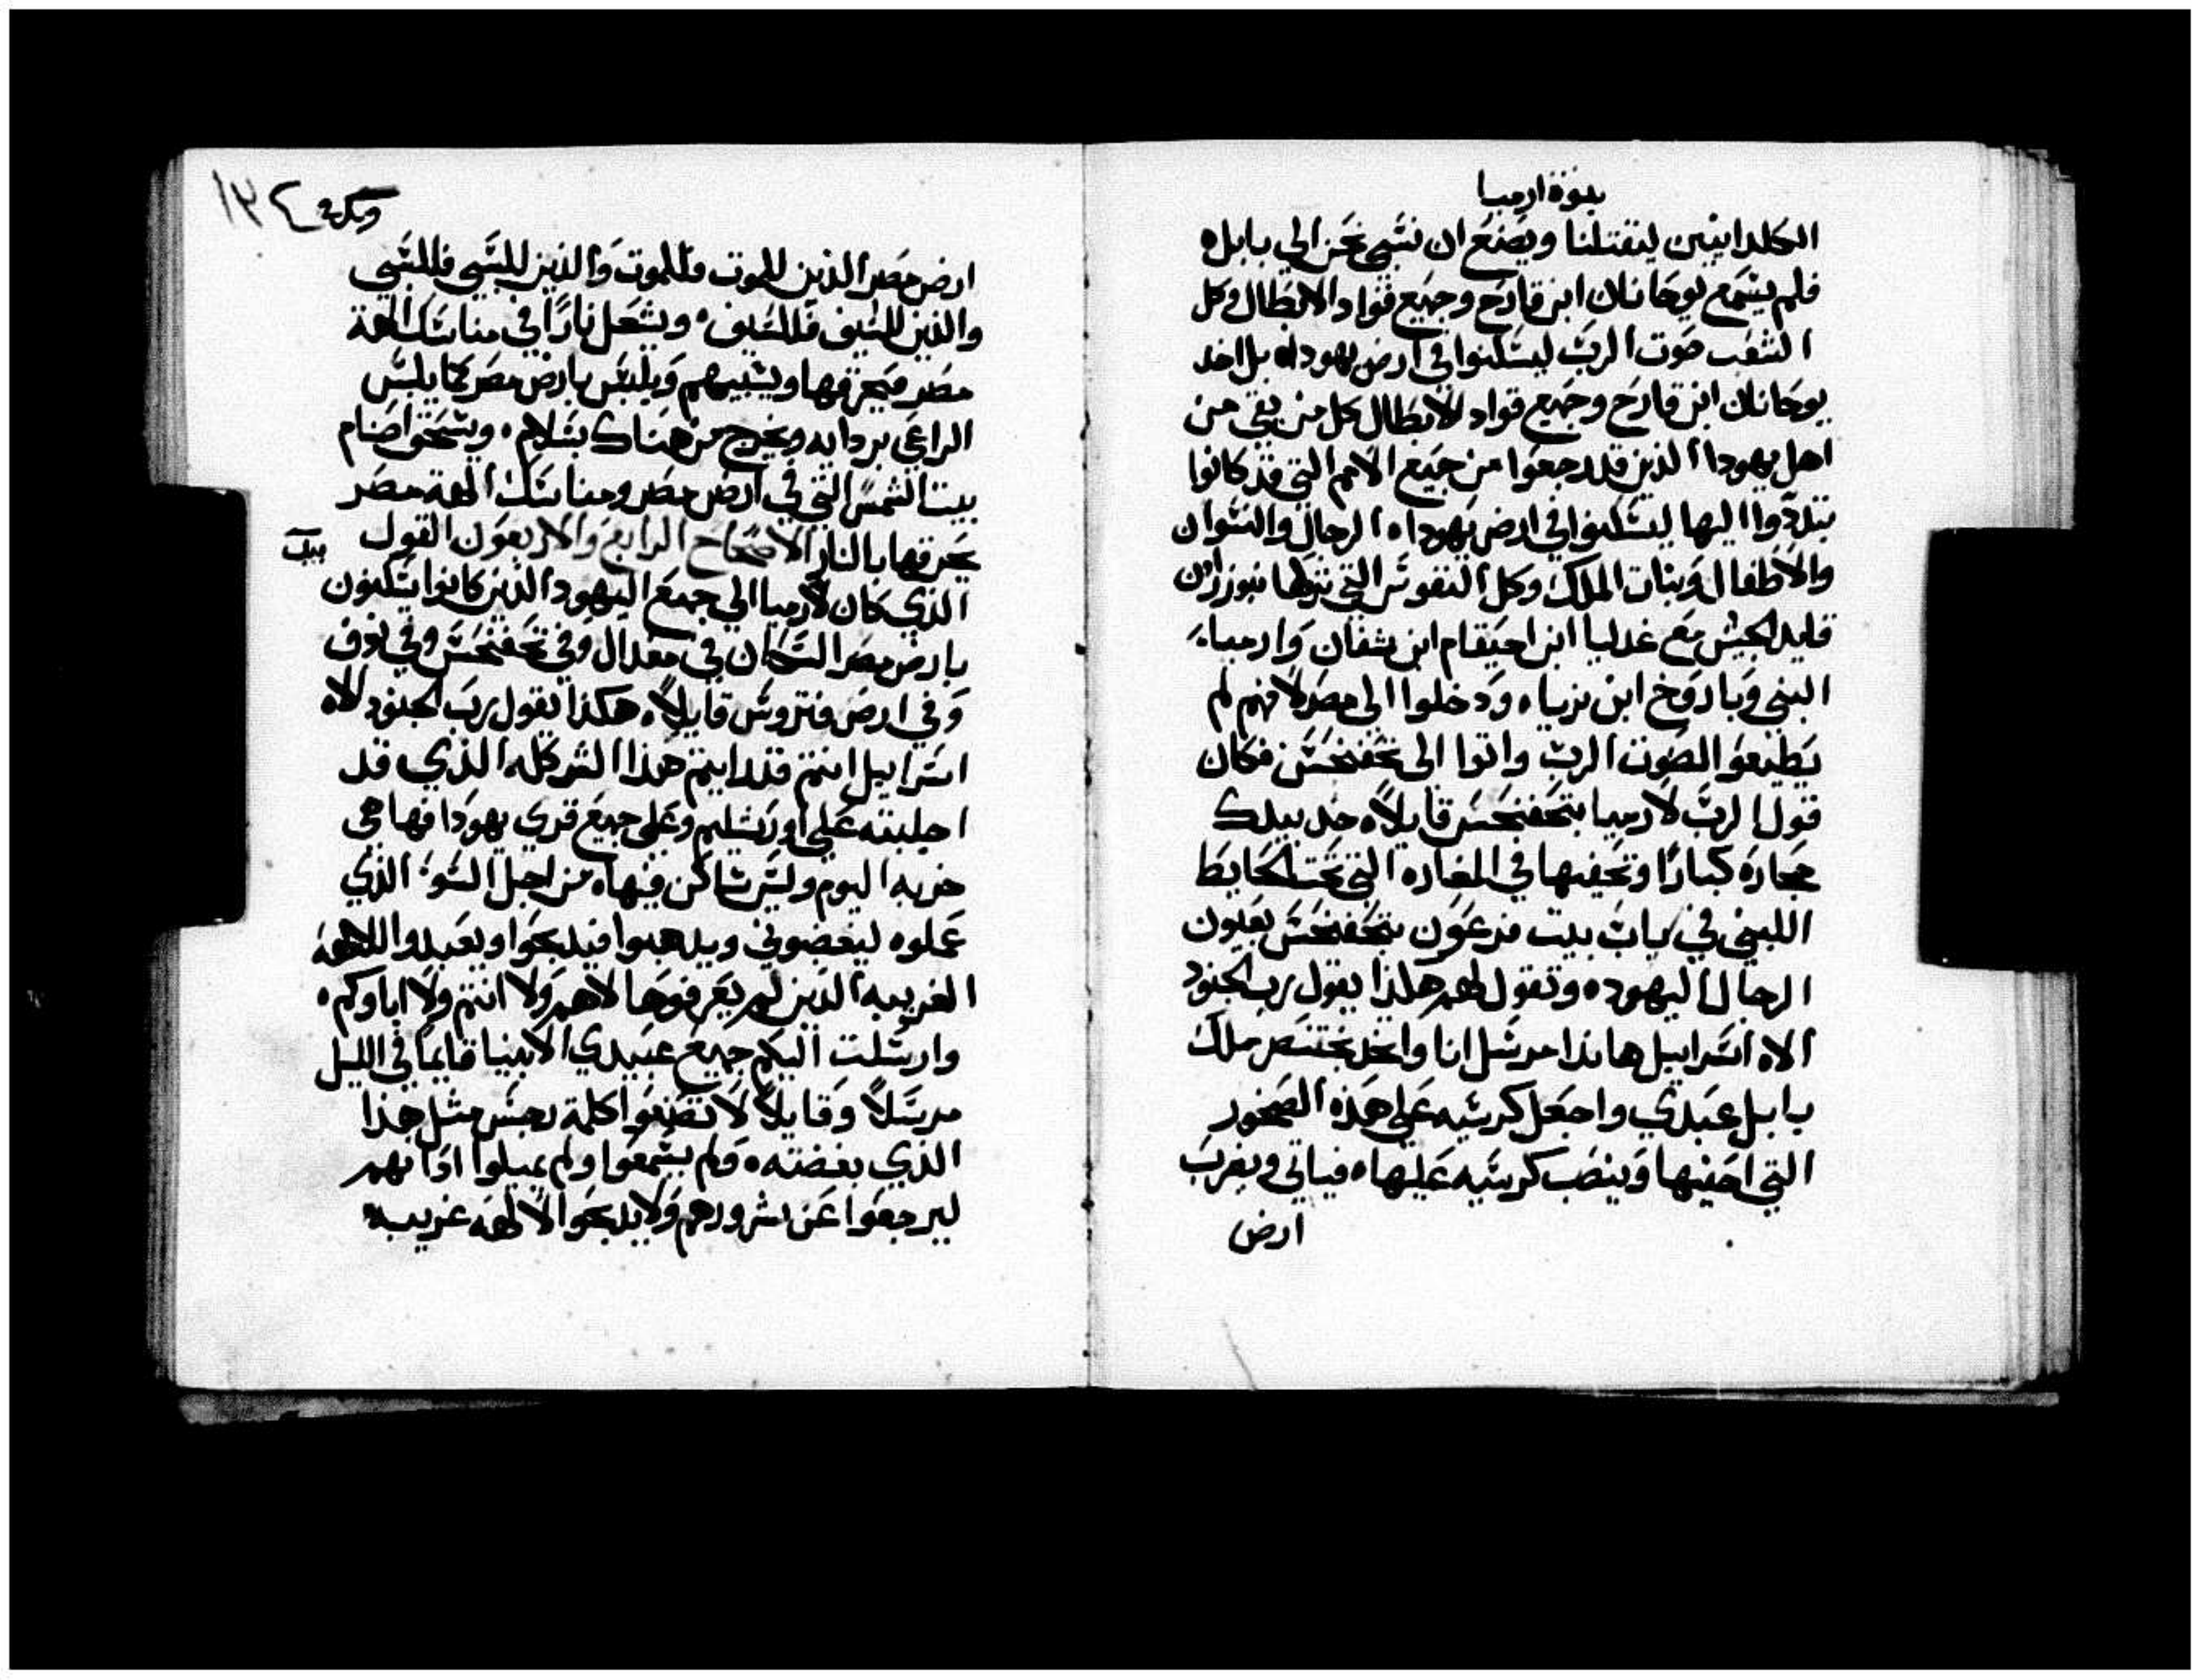 نبوة ارميا
الكلدانيين ليقتلنا ويصنع ان نسبي نحن الي بابل ه
فلم يسمع يوحانان ابن قارح وجميع قواد الابطال وكل
الشعب صوت الرب ليسكنوا في ارض يهودا ه بل اخد
يوحانان ابن قارح وجميع قواد الابطال كل من بقي من
اهل يهودا الذين قد رجعوا من جميع الامم التي قد كانوا
تبددوا اليها ليسكنوا في ارض يهودا ه الرجال والنسوان
والاطفال وبنات الملك وكل النفوس التي تركها نبوزردان
قايد الجيش مع غدليا ابن احيقام ابن شفان وارميا
النبي وباروخ ابن نريا ه ودخلوا الي مصر لانهم لم
يطيعوا الصوت الرب واتوا الي تحفنحس فكان
قول الرب لارميا بتحفنحس قايلاً ه خد بيدك
حجاره كبارًا وتخفيها في المغاره التي تحت الحايط
اللبني في باب بيت فرعون بتحفنحس بعيون
الرجال اليهود ه وتقول لهم هكذا يقول رب الجنود
الاه اسراييل هانذا مرسل انا واخد بختنصر ملك
بابل عبدي واجعل كرسيه علي هذه الصخور
التي اخفيها وينصب كرسيه عليها ه فياتي ويضرب
ارض
١٣٤
ارض مصر الذين للموت فللموت والذين للسبي فللسبي
والذين للسيف فللسيف ه ويشعل نارًا في مناسك الهة
مصر فيحرقها ويسبيهم ويلبس بارض مصر كما يلبس
الراعي بردايه ويخرج من هناك بسلام ه ويسحق اصنام
بيت الشمس التي في ارض مصر ومناسك الهة مصر
يحرقها بالنار الاصحاح الرابع والاربعون القول
الذي كان لارميا الي جميع اليهود الذين كانوا يسكنون
بارض مصر السكان في مغدال وفي تحفنحس وفي نوف
وفي ارض فتروس قايلاً ه هكذا يقول رب الجنود الاه
اسراييل انتم قد رايتم هذا الشر كله الذي قد
اجلبته علي اورشليم وعلي جميع قري يهودا فها هي
خربه اليوم وليس ساكن فيها ه من اجل السوء الذي
عملوه ليغضبوني ويدهبوا فيدبحوا ويعبدوا الالهه
الغريبه الذين لم يعرفوها لا هم ولا انتم ولا اباوكم ه
وارسلت اليكم جميع عبيدي الانبيا قايمًا في الليل
مرسلاً وقايلاً لا تصنعوا كلمة رجس مثل هذا
الذي بغضته ه ولم يسمعوا ولم يميلوا اذانهم
ليرجعوا عن شرورهم ولا يدبحوا لالهه غريبه